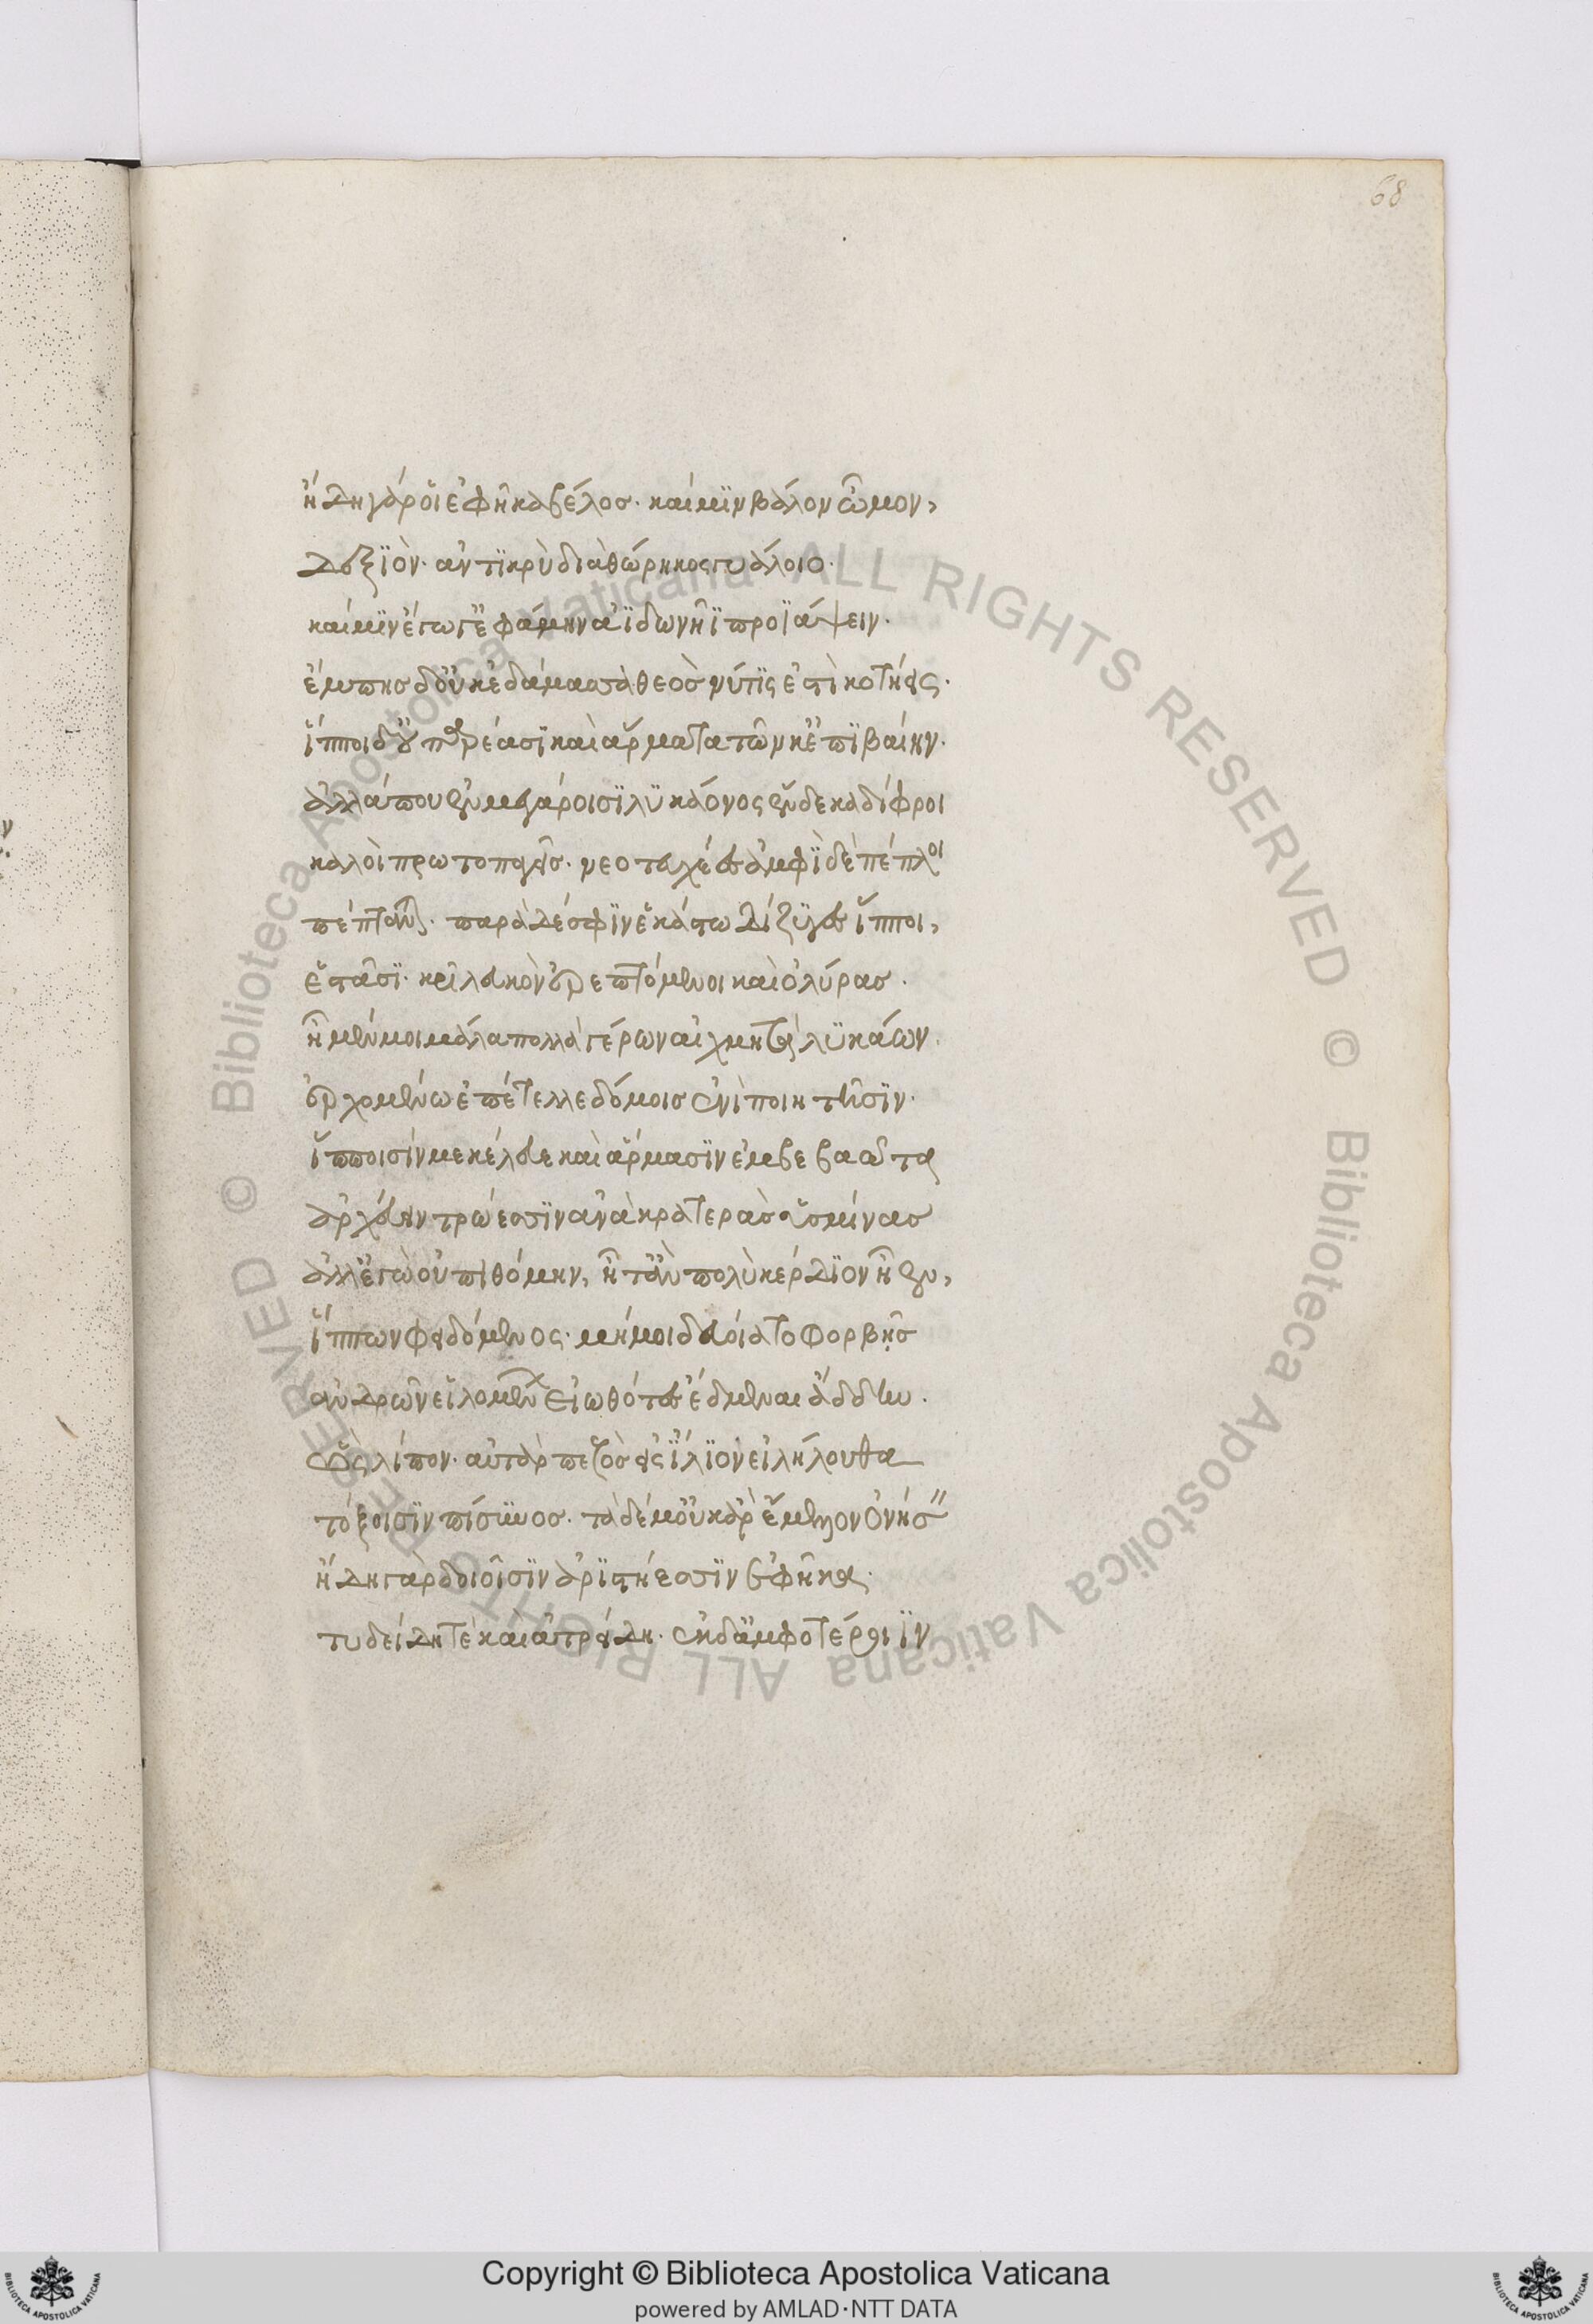 68
ἤδη γάρ οἱ ἐφῆκα βέλος· καί μϊν βάλον ὦμον,
δεξϊὸν· αντϊκρὺ διὰ θώρηκος γυάλοιο·
καί μϊν ἔγωγ' ἐφάμην ἀϊδωνῆϊ προϊάψειν·
ἔμπησ δ' οὐκ ἐδάμασσα· θεός νύ τίς ἐστὶ κοτήεις·
ἵπποι δ' οὐ παρέασϊ καὶ ἅρματα τῶν κ' ἐπϊβαίην·
ἀλλά που ἐν μεγάροισϊ λϋκάονος ἕνδεκα δίφροι
καλοὶ πρωτοπαγεῖσ· νεοτευχέες ἀμφὶ δὲ πέπλοι
πέπτανται· παρὰ δέ σφϊν ἑκάστω δίζϋγες ἵπποι,
ἑστᾶσϊ· κρῖ λευκὸν ἐρεπτόμενοι καὶ ὀλύρασ·
ἦ μέν μοι μάλα πολλὰ γέρων αἰχμητὰ λϋκάων
ἐρχομένω ἐπέτελλε δόμοισ ἐνὶ ποιητοῖσϊν·
ἵπποισίν με κέλευε καὶ ἅρμασϊν ἐμβεβαῶτα
ἀρχεύειν τρώεσσϊν ἀνὰ κρατερὰσ ὑσμίνασ
ἀλλ' ἐγὼ οὐ πιθόμην, ἦ τ' ἂν πολὺ κέρδϊον ἦεν,
ἵππων φειδόμενος· μή μοι δευοίατο φορβῆσ
ἀνδρῶν εἰλομένων εἰωθότες ἔδμεναι ἄδδην·
ὣς λίπον· αὐτὰρ πεζὸσ εἰς ἴλϊον εἰλήλουθα
τόξοισϊν πίσϋνος· τὰ δέ μ' οὐκ ἄρ' ἔμελλον ὀνήσ"
ἤδη γὰρ δοιοῖσϊν ἀρϊστήεσσϊν ἐφῆκα·
τυδείδη τὲ καὶ ἀτρείδη· ἐκ δ' ἀμφοτέροιϊν
Bibliotheca Apostolica Vaticana ALL RIGHTS RESERVED ©
Copyright © Biblioteca Apostolica Vaticana
powered by AMLAD·NTT DATA